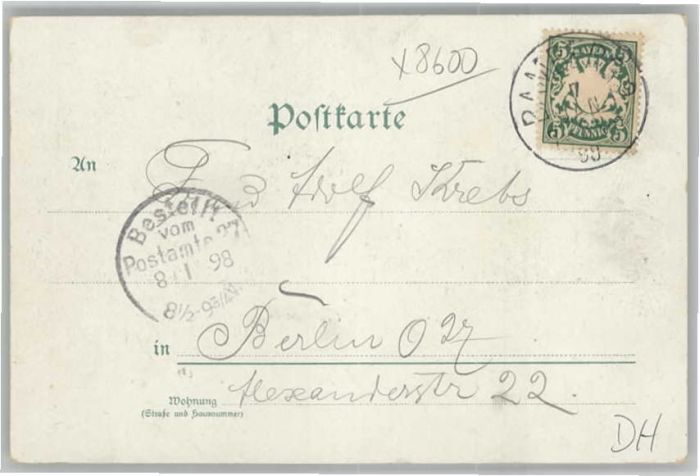 x8600
Postkarte
An
Adolf Krebs
Bestellt
vom
Postamte 27
8 1 98
8½-9¾N.
in Berlin O 27
Alexanderstr 22.
Wohnung
(Straße und Hausnummer)
DH
5 5
5 PFENNIG 5